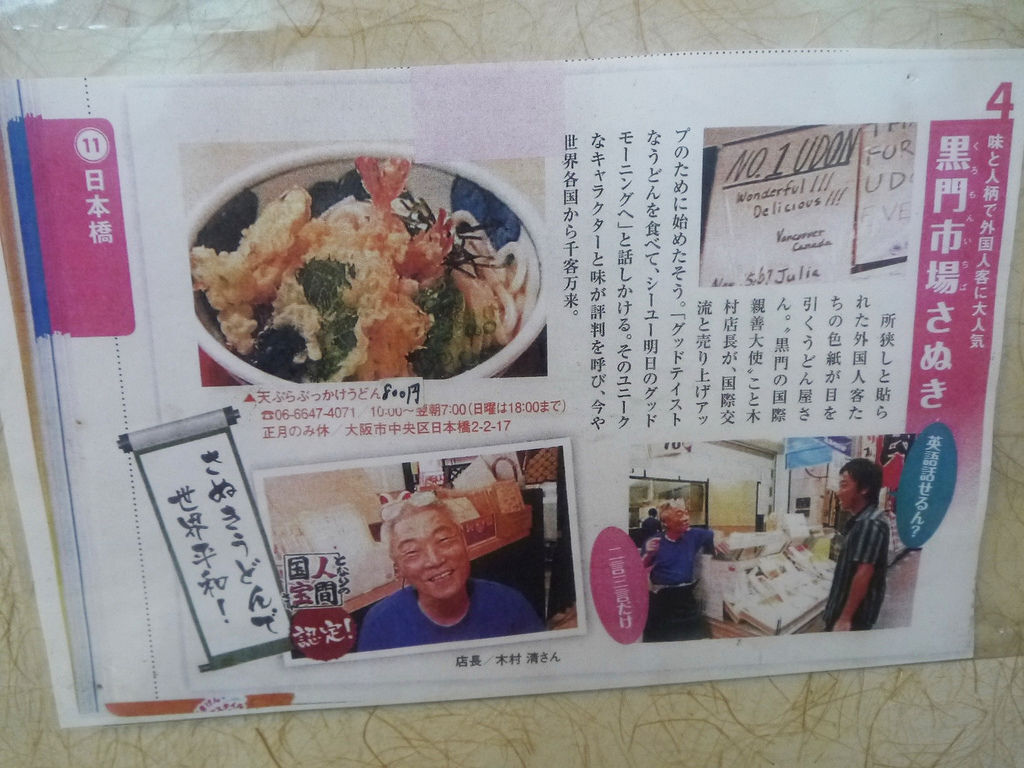 4
味と人柄で外国人客に大人気
くろもんいちば
黒門市場さぬき
NO.1 UDON
Wonderful!!!
Delicious!!!
Vancouver
Canada
Julia
FUR
UD
EVE
所狭しと貼ら
れた外国人客た
ちの色紙が目を
引くうどん屋さ
ん。〝黒門の国際
親善大使〟こと木
村店長が、国際交
流と売り上げアッ
プのために始めたそう。「グッドテイスト
なうどんを食べて、シーユー明日のグッド
モーニングへ」と話しかける。そのユニーク
なキャラクターと味が評判を呼び、今や
世界各国から千客万来。
▲天ぷらぶっかけうどん800円
☎06-6647-4071/10:00〜翌朝7:00(日曜は18:00まで)
正月のみ休/大阪市中央区日本橋2-2-17
英語話せるん?
二言三言だけ
となりの
人間
国宝さん
認定!
店長/木村 清さん
さぬきうどんで
世界平和!
11
日本橋
スタイル